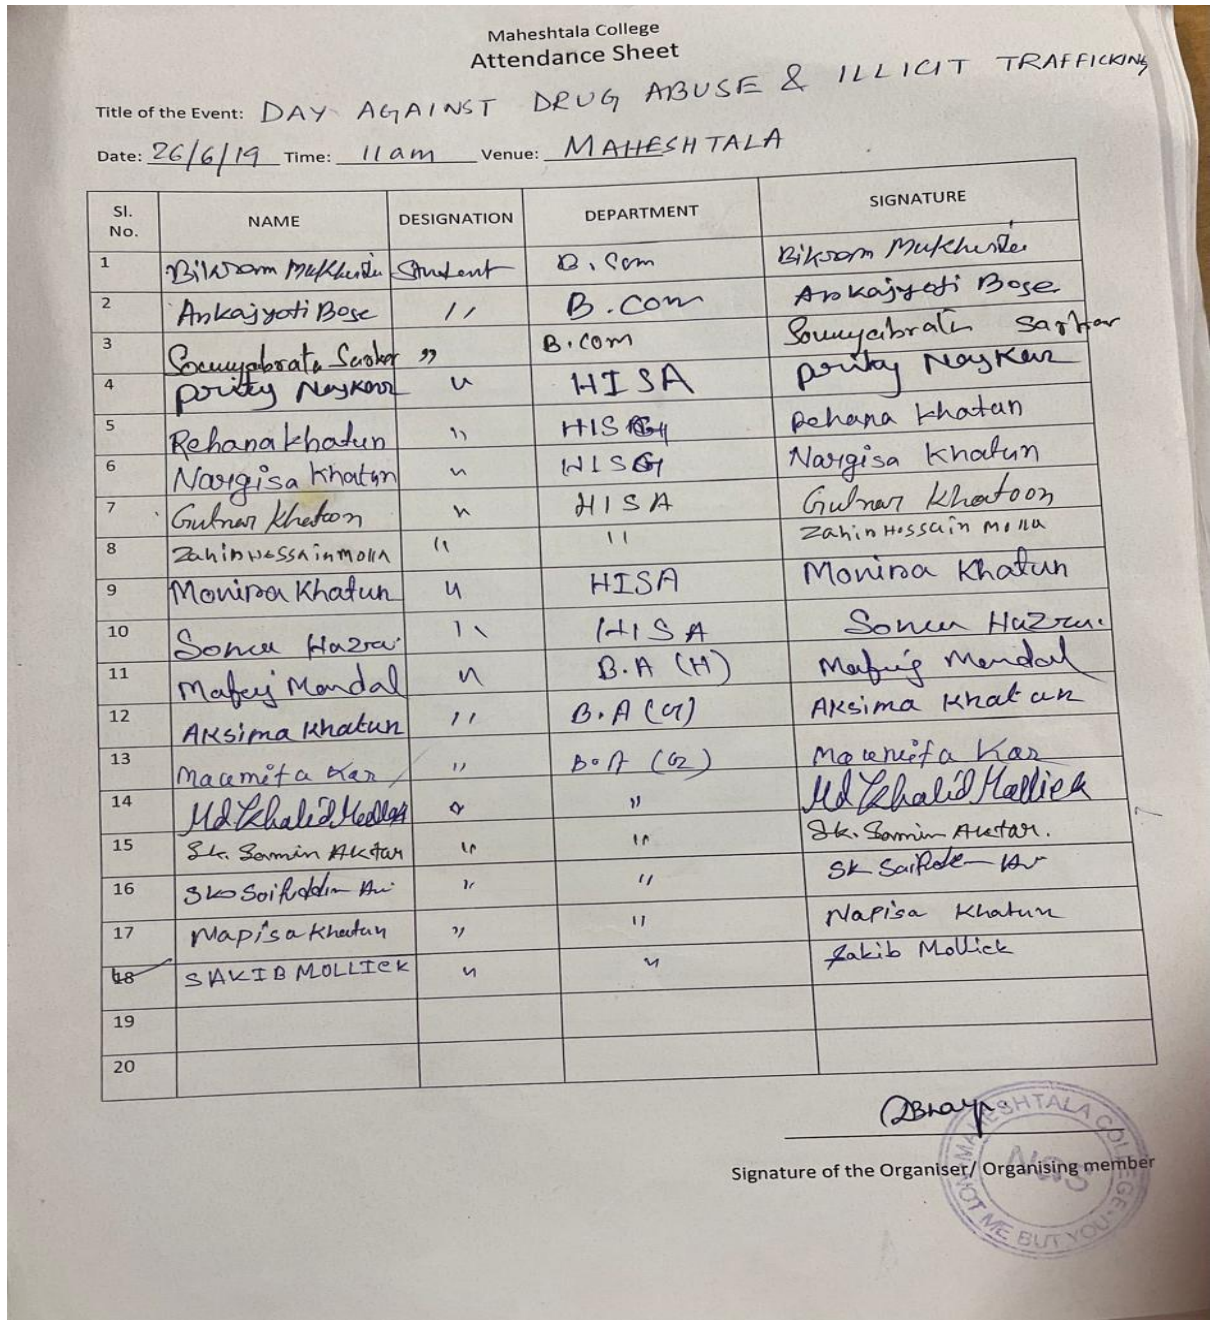 Maheshtala College
Attendance Sheet
Title of the Event: DAY AGAINST DRUG ABUSE & ILLICIT TRAFFICKING
Date: 26/6/19 Time: 11am Venue: MAHESHTALA
Sl. No. NAME DESIGNATION DEPARTMENT SIGNATURE
1 Bikrom Student B.Com Bikrom
2 Ankajyoti Bose " B.Com Ankajyoti Bose
3 Soumyabrata Sarkar " B.Com Soumyabrata Sarkar
4 Prity Naskar " HISA Prity Naskar
5 Rehana Khatun " HISG Rehana Khatun
6 Nargisa Khatun " HISG Nargisa Khatun
7 Gulnar Khatoon " HISA Gulnar Khatoon
8 Zahin Hossain Molla " " Zahin Hossain Molla
9 Monira Khatun " HISA Monira Khatun
10 Hazra " HISA Hazra
11 Mondal " B.A (H) Mondal
12 Aksima Khatun " B.A (G) Aksima Khatun
13 Moumita Kar " B.A (G) Moumita Kar
14 Md Khalid Mallick " " Md Khalid Mallick
15 Sk. Samin Aktar " " Sk. Samin Aktar.
16 Sk Saifuddin " " Sk
17 Napisa Khatun " " Napisa Khatun
18 SAKIB MOLLICK " " Sakib Mollick
19
20
Signature of the Organiser/ Organising member
MAHESHTALA COLLEGE
NSS
NOT ME BUT YOU